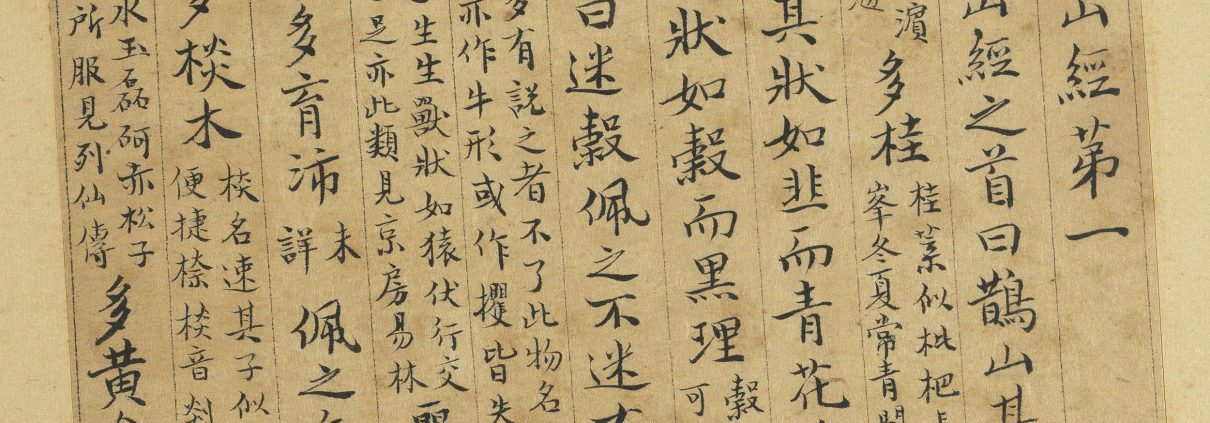 山經第一
山經之首曰鵲山其
濵
多桂
桂葉似枇杷
峯冬夏常青間
其狀如韭而青花
狀如穀而黑理
穀
可
曰迷穀佩之不迷
多有説之者不了此物名
亦作牛形或作攫皆失
生生獸狀如猿伏行交
足亦此類見京房易林
多育沛
未
詳
佩之
棪木
棪名速其子似
便捷㮈棪音剡
水玉磊砢亦松子
所服見列仙傳
多黄